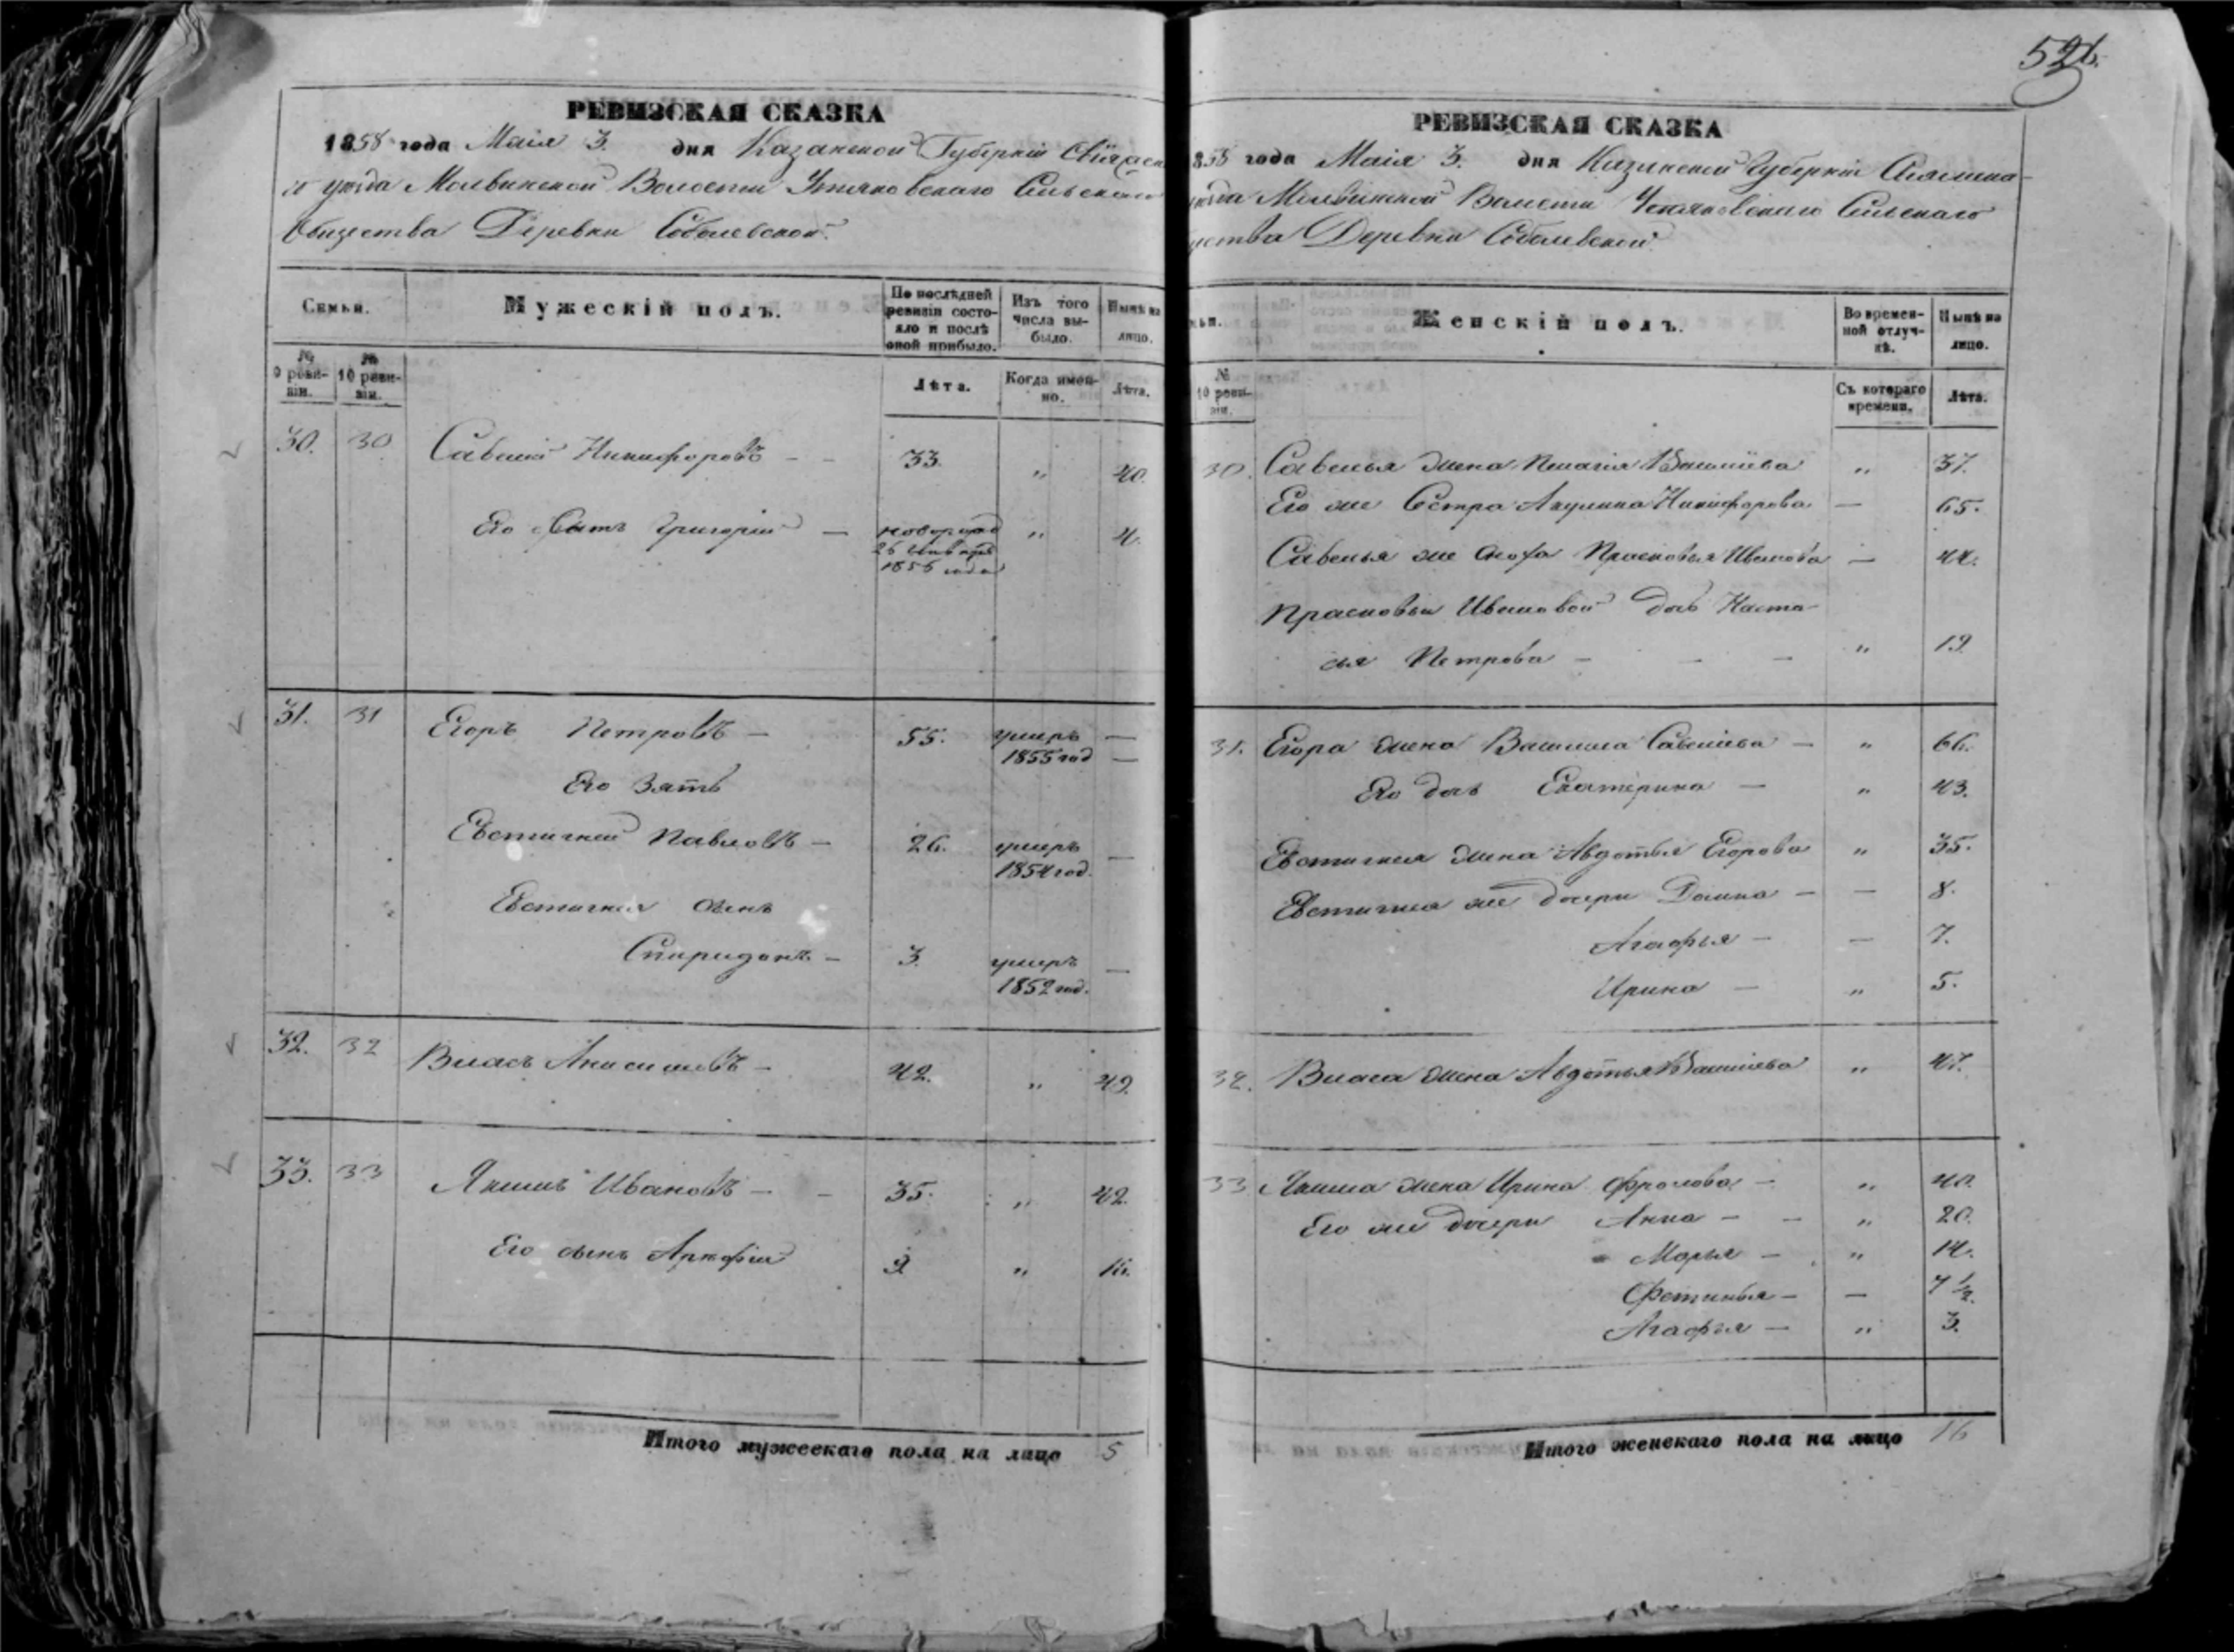 521.
РЕВИЗСКАЯ СКАЗКА
1858 года Маія 3. дня Казанской Губерніи Свіяжск
го уѣзда Молвинской Волости Утяковскаго Сельскаго
Общества Деревни Соболевской.
Семьи.
Мужескій полъ.
По послѣдней ревизіи состояло и послѣ оной прибыло.
Изъ того числа выбыло.
Нынѣ на лицо.
№ 9 ревизіи.
№ 10 ревизіи.
Лѣта.
Когда именно.
Лѣта.
30. 30 Савелій Никифоровъ - - 33. " 40.
Его сынъ Григорій — новорожд " 4.
1855 года
31. 31 Егоръ Петровъ — 55. умеръ —
1855 год —
Его Зять
Евстигней Павловъ — 26. умеръ —
1854 год.
Евстигнея сынъ
Спиридонъ — 3. умеръ —
1852 год.
32. 32 Власъ Анисимовъ — 42. " 49.
33. 33 Якимъ Ивановъ — - 35. " 42.
Его сынъ 9. " 16.
Итого мужескаго пола на лицо 5
РЕВИЗСКАЯ СКАЗКА
858 года Маія 3. дня Казанской Губерніи
уѣзда Молвинской Волости Утяковскаго Сельскаго
щества Деревни Соболевской.
ьи.
Женскій полъ.
Во временной отлучкѣ.
Нынѣ на лицо.
№ 10 ревизіи.
Съ котораго времени.
Лѣта.
30. Савелья жена Пелагія Васильева " 37.
Его же Сестра Акулина Никифорова — 65.
Савелья же сноха Прасковья Иванова — 44.
Прасковьи Ивановой дочь Наста-
сья Петрова - - - " 19.
31. Егора жена Василиса Савельева — " 66.
Его дочь Екатерина — " 43.
Евстигнея жена Авдотья Егорова " 35.
Евстигнея же дочери Домна — — 8.
Агафья — — 7.
Ирина — " 5.
32. Власа жена Авдотья Васильева " 47.
33 Якима жена Ирина Фролова — " 40.
Его же дочери Анна - - " 20.
Марья — " 14.
Фетинья — — 7 1/2.
Агафья — " 3.
Итого женскаго пола на лицо 16